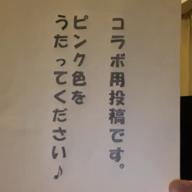 コラボ用投稿です。
ピンク色を
うたってください♪